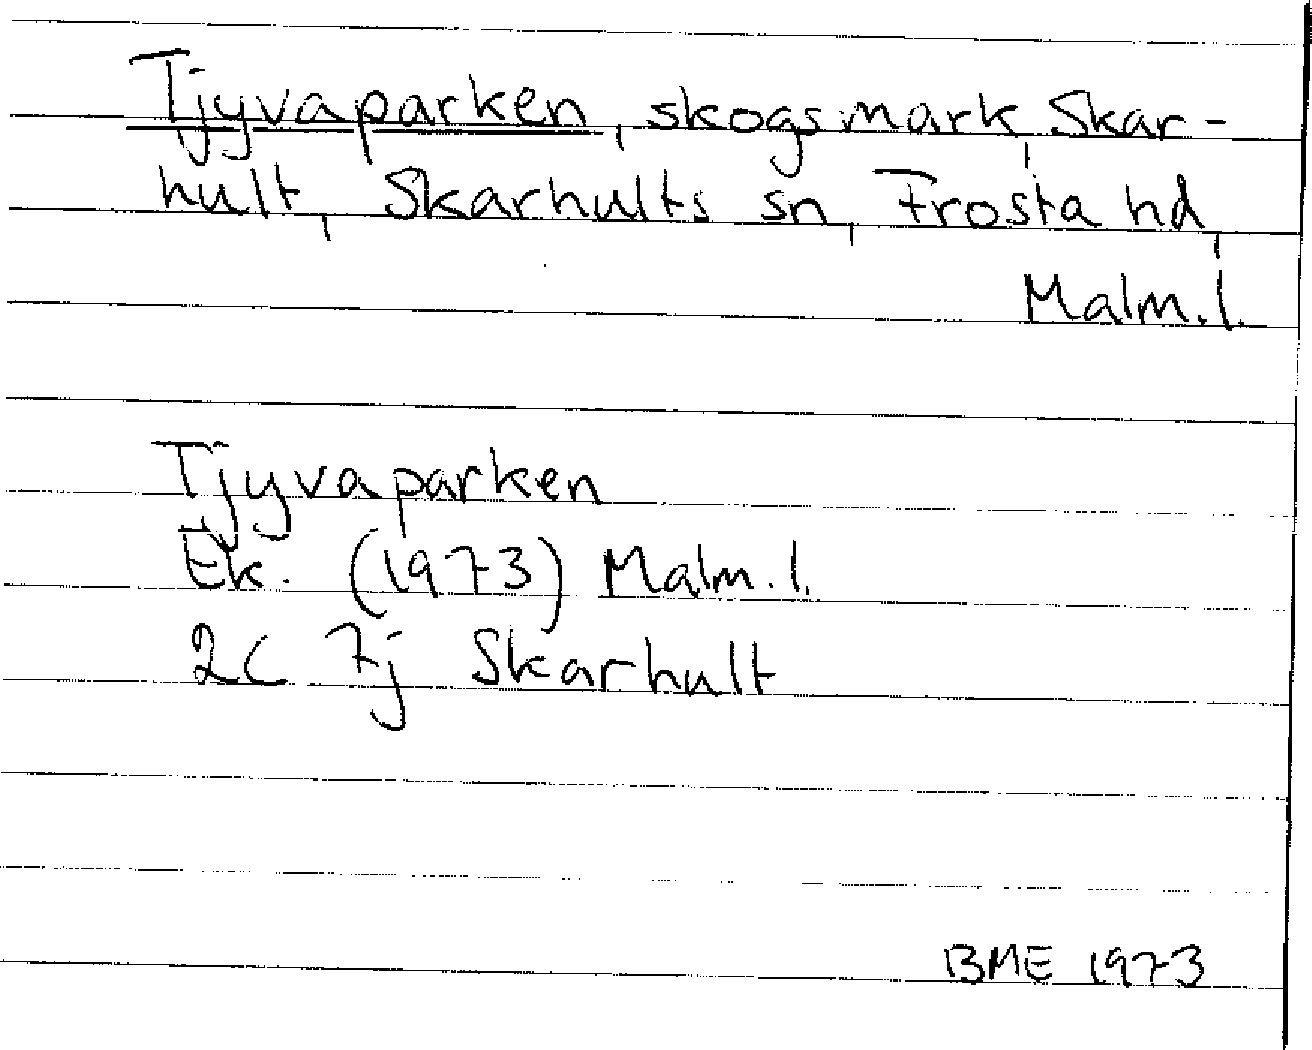 Tjyvaparken, skogsmark, Skar-
hult, Skarhults sn, Frosta hd,
Malm. l.
Tjyvaparken
Ek. (1973) Malm. l.
2C 7j Skarhult
BME 1973